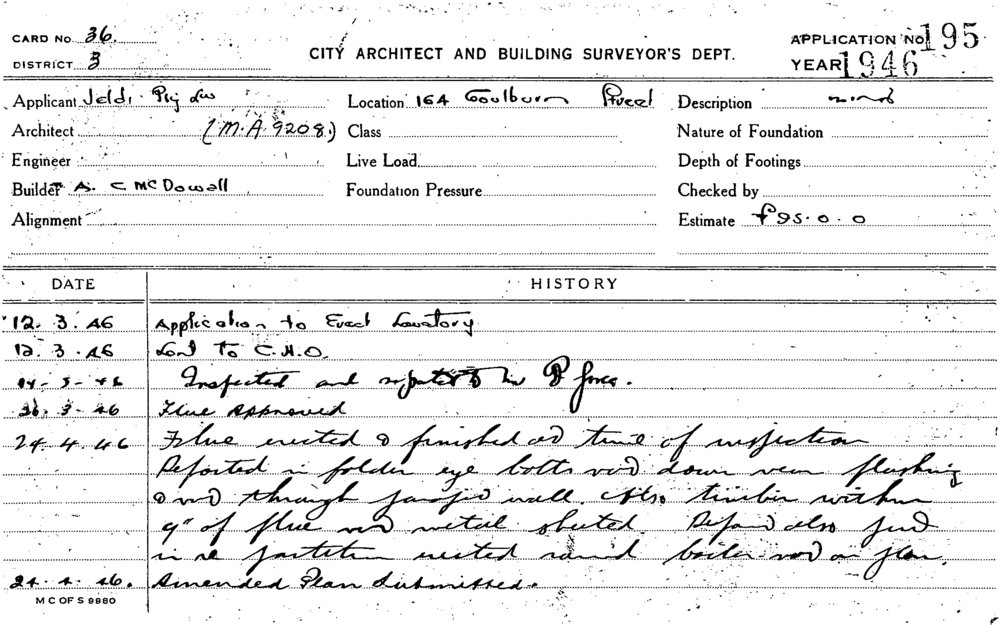 CARD No. 36.
DISTRICT 3
CITY ARCHITECT AND BUILDING SURVEYOR'S DEPT.
APPLICATION No 195
YEAR 1946
Applicant Jeldi Pty
Location 164 Goulburn Street
Description
Architect (M.A 9208.)
Class
Nature of Foundation
Engineer
Live Load
Depth of Footings
Builder A. C McDowell
Foundation Pressure
Checked by
Alignment
Estimate £95.0.0
DATE HISTORY
12. 3. 46 Application to Erect Lavatory
12. 3. 46 to C.H.O.
Inspected and Mr Jones.
26. 3. 46 Flue Approved
24. 4. 46 Flue erected & finished at time of inspection
Reported in folder eye bolts down flashing
& through wall. Also timber within
9" of flue metal sheeted also
in re partition erected round boiler on plan.
24. 4. 46. Amended Plan Submitted.
M C OF S 9980